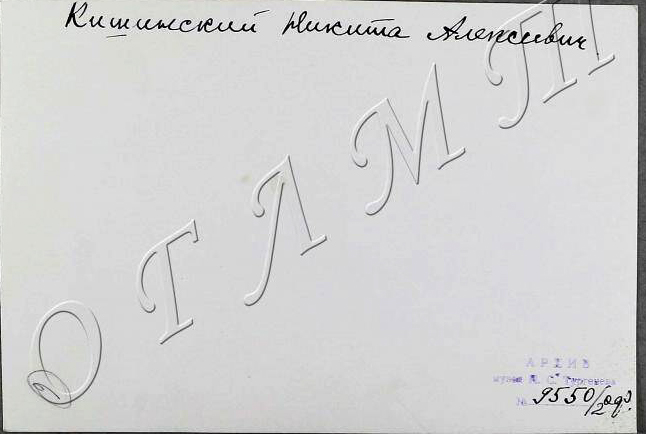 Кишинский Никита Алексеевич
ОГЛМТ
АРХИВ
музея И. С. Тургенева
№ 9550/2 оф.
6